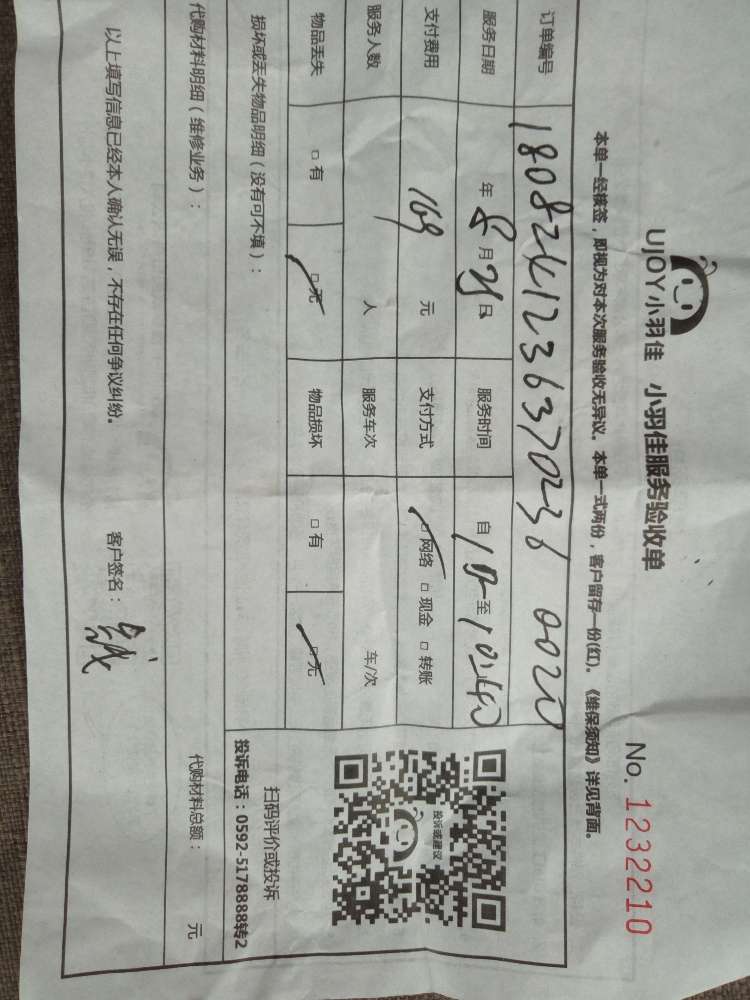 UJOY小羽佳 小羽佳服务验收单
No. 1232210
本单一经核签，即视为对本次服务验收无异议。本单一式两份，客户留存一份(红)。《维保须知》详见背面。
订单编号
服务日期 年 8 月 25 日 服务时间 自 至
支付费用 169 元 支付方式 □网络 □现金 □转账
服务人数 人 服务车次 车/次
物品丢失 □有 □无 物品损坏 □有 □无
损坏或丢失物品明细（没有可不填）：
投诉或建议
扫码评价或投诉
投诉电话：0592-5178888转2
代购材料明细（维修业务）： 代购材料总额： 元
以上填写信息已经本人确认无误，不存在任何争议纠纷。 客户签名：